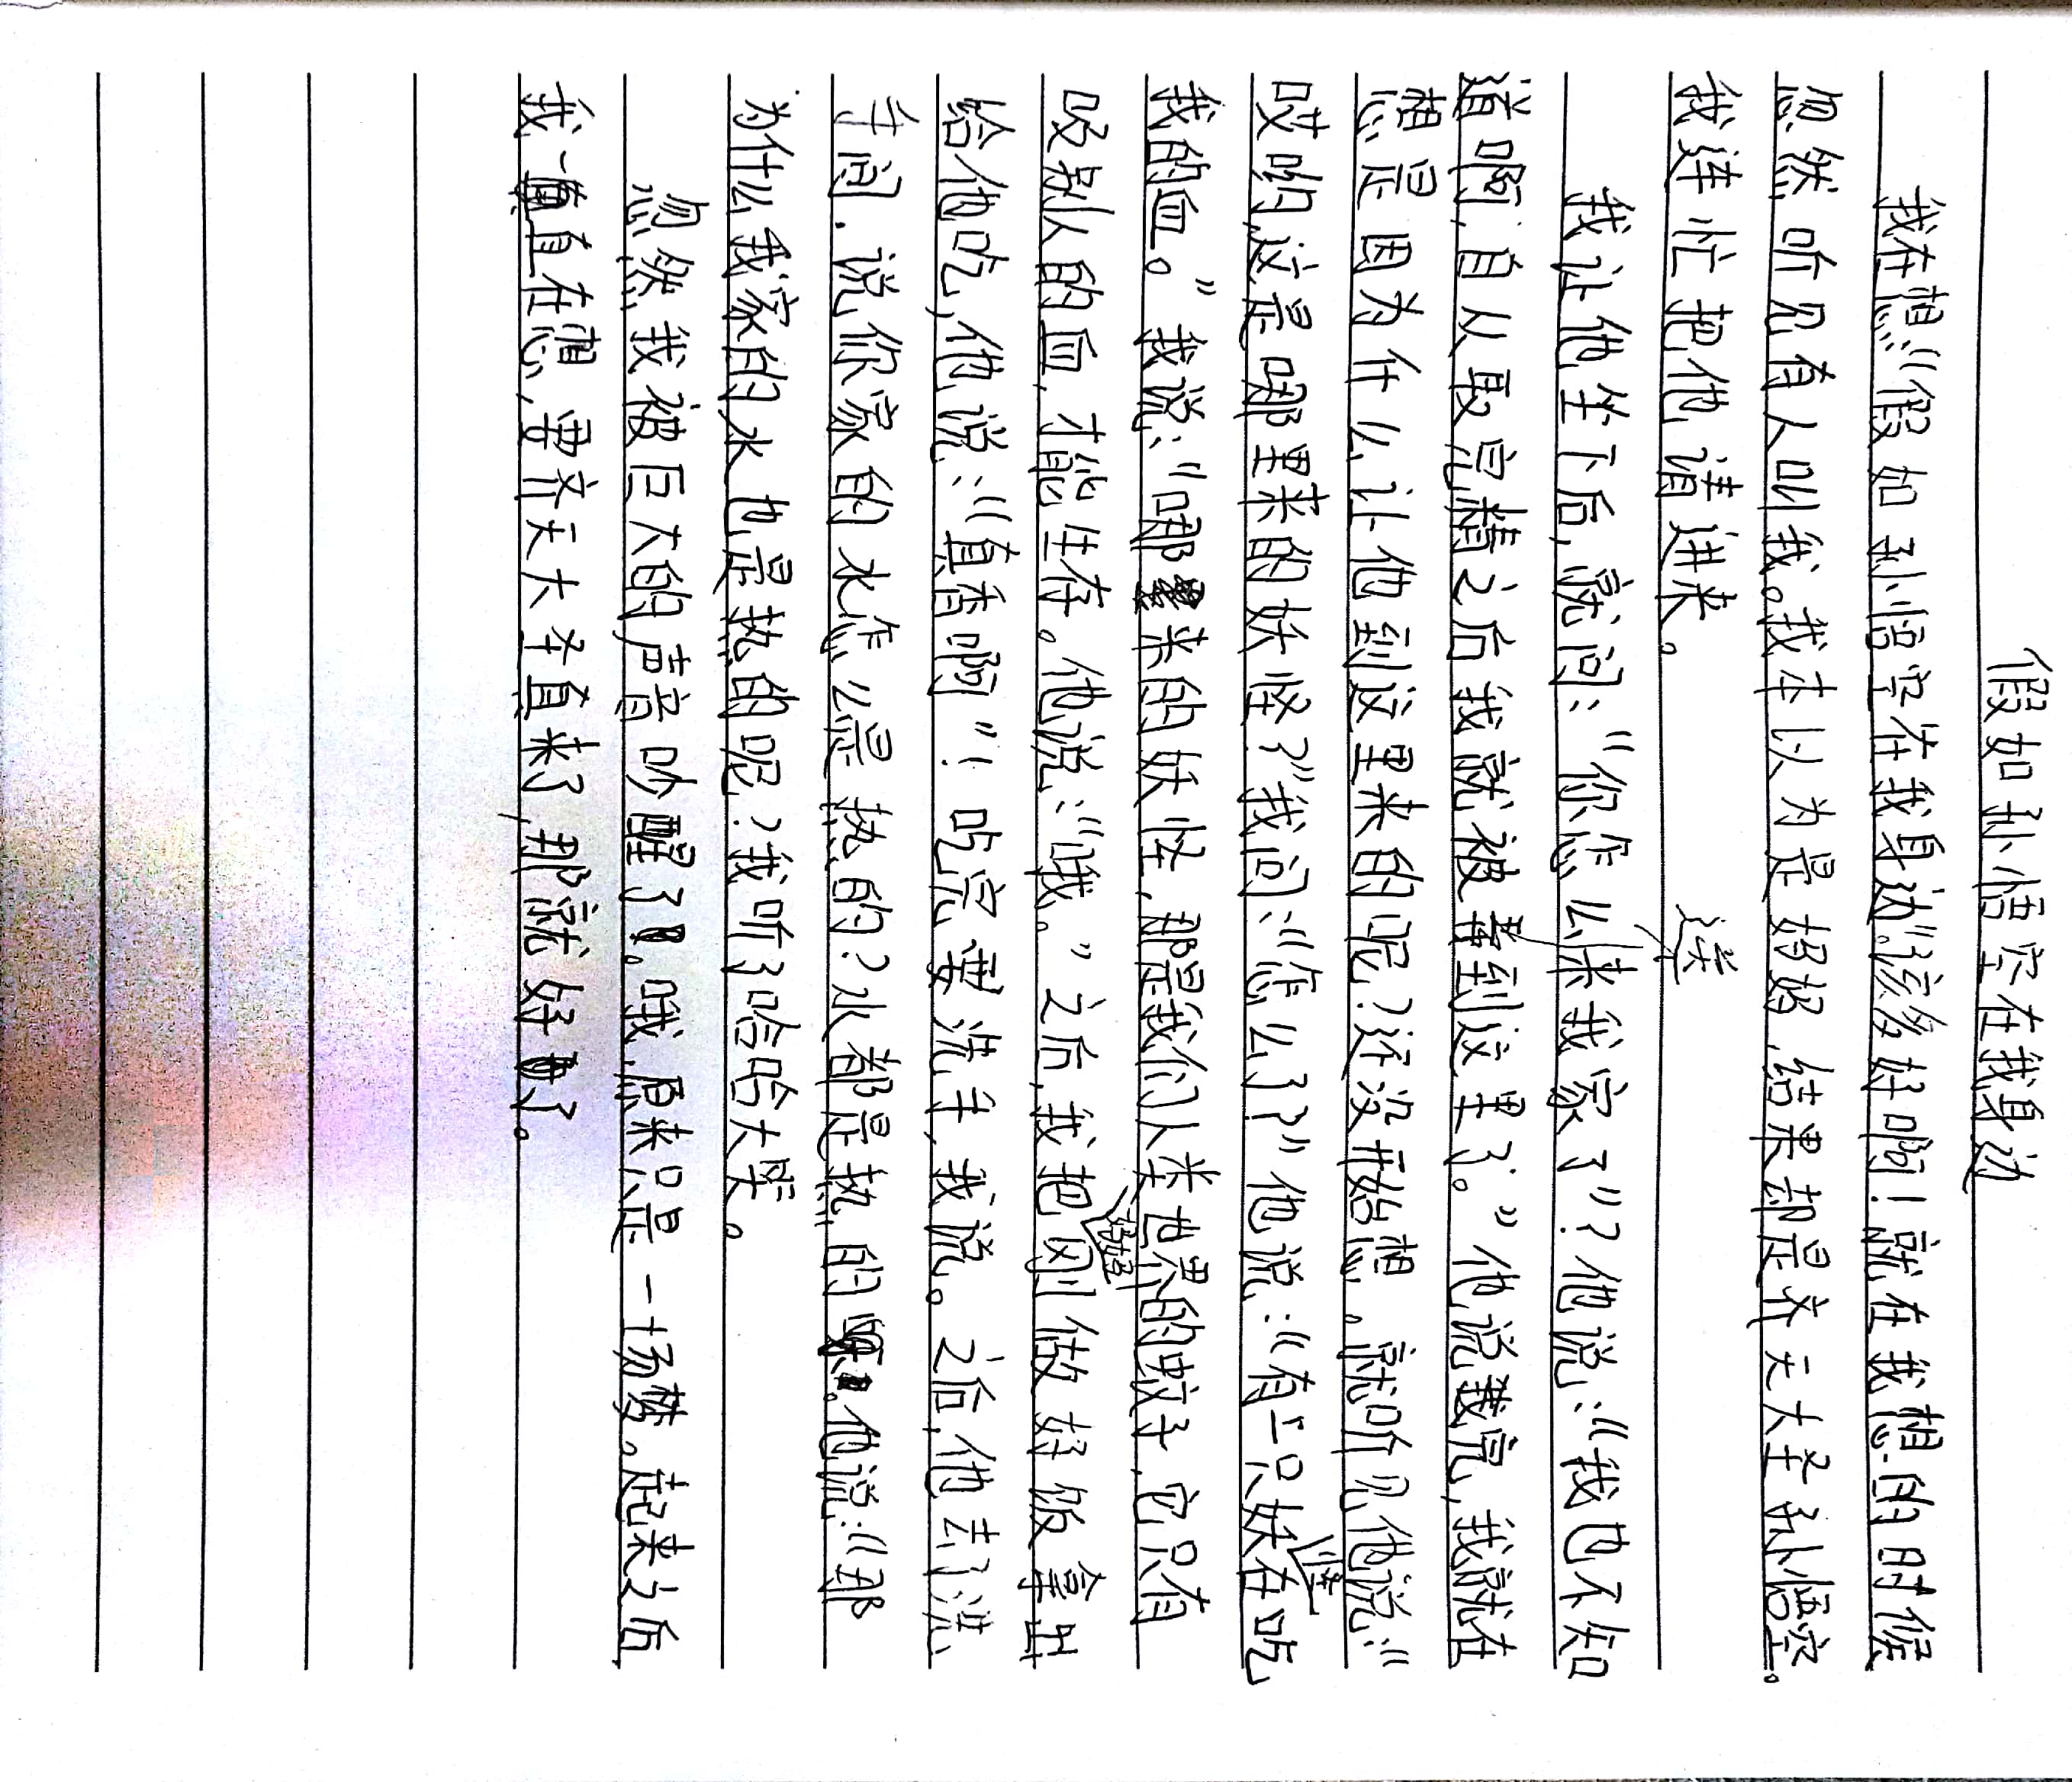 假如孙悟空在我身边
我在想:“假如孙悟空在我身边”该多好啊!就在我想的时候
忽然听见有人叫我。我本以为是妈妈,结果却是齐天大圣孙悟空。
我连忙把他请进来。
我让他坐下后,就问:“你怎么来我家了”?他说:“我也不知
道啊,自从取完精之后我就被送到这里了。”他说我完,我就在
想是因为什么让他到这里来的呢?还没开始想。就听见他说:“
哎哟,这是哪里来的妖怪?”我问:“怎么了?”他说:“有一只妖怪在吃
我的血。”我说:“哪里来的妖怪,那是我们人类世界的蚊子,它只有
吸别人的血,才能生存。他说:“哦。”之后,我把妈妈刚做好饭拿出
给他吃,他说:“真香啊”!吃完要洗手,我说。之后,他去了洗
手间.说你家的水怎么是热的?水都是热的嘛.他说:“那
为什么我家的水也是热的呢?我听了哈哈大笑。
忽然,我被巨大的声音吵醒了。哦,原来只是一场梦。起来之后
我一直在想,要齐天大圣真来了,那就好了。